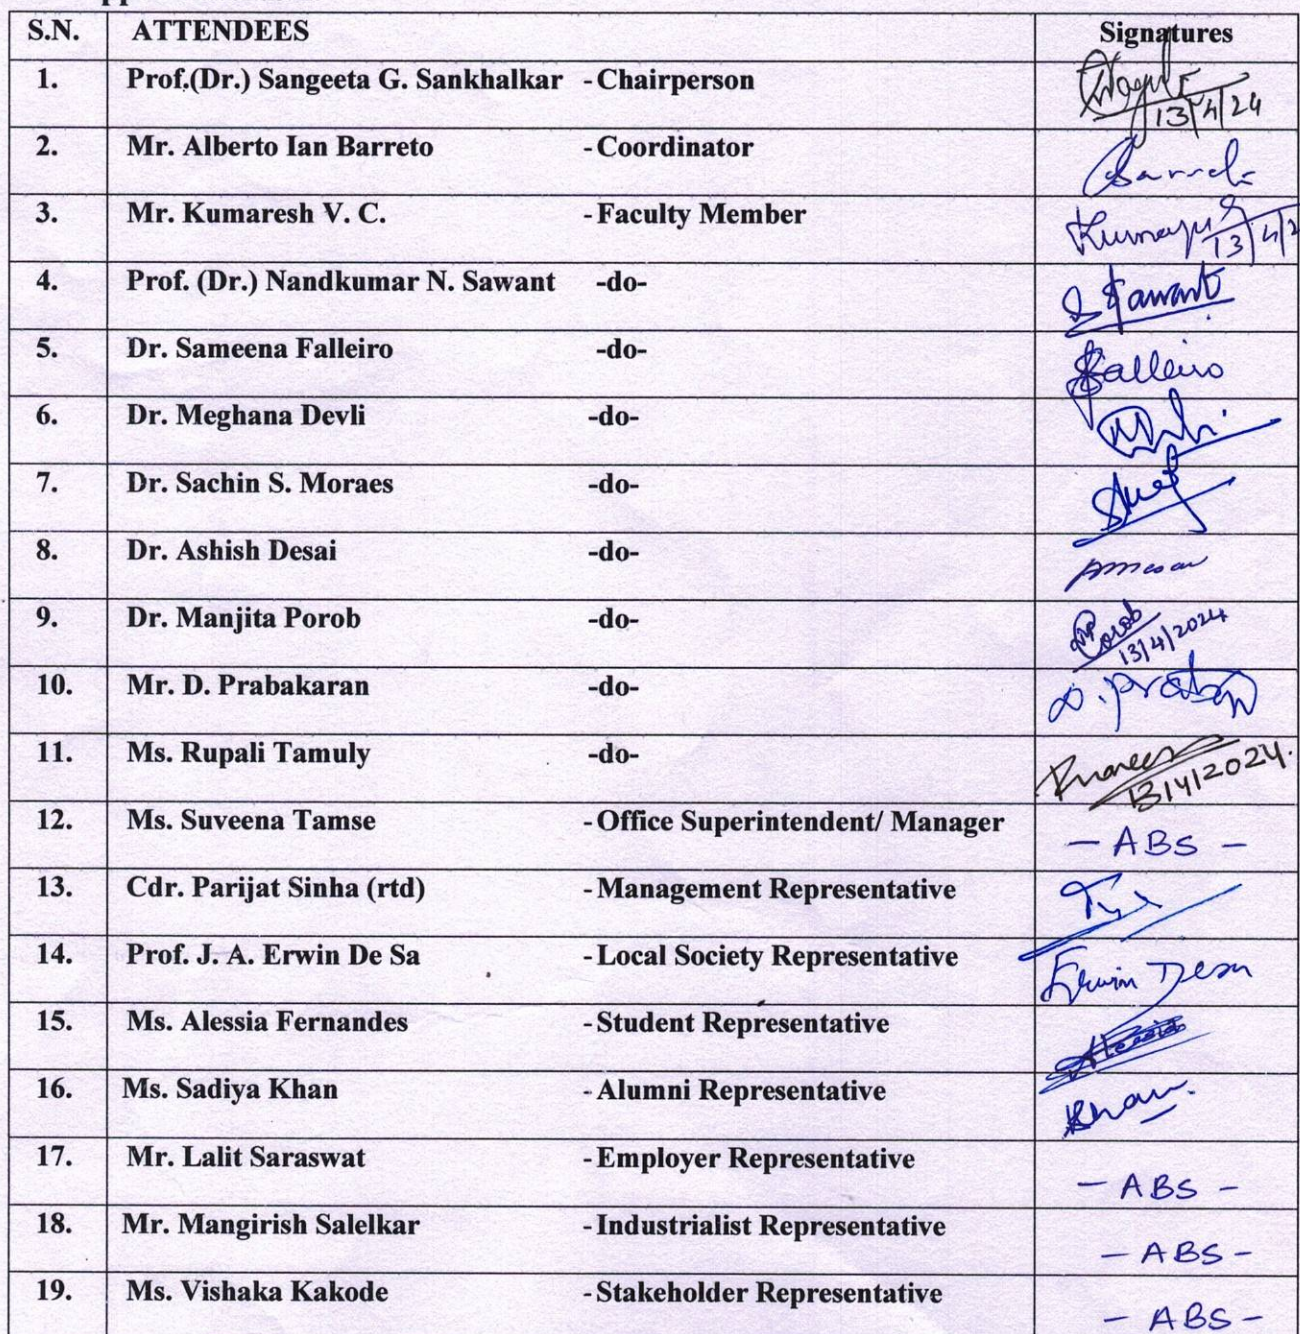 S.N. ATTENDEES Signatures
1. Prof.(Dr.) Sangeeta G. Sankhalkar - Chairperson
13/4/24
2. Mr. Alberto Ian Barreto - Coordinator
3. Mr. Kumaresh V. C. - Faculty Member
13/4/2
4. Prof. (Dr.) Nandkumar N. Sawant -do- Sawant
5. Dr. Sameena Falleiro -do- Falleiro
6. Dr. Meghana Devli -do-
7. Dr. Sachin S. Moraes -do-
8. Dr. Ashish Desai -do-
9. Dr. Manjita Porob -do- Porob
13/4/2024
10. Mr. D. Prabakaran -do-
11. Ms. Rupali Tamuly -do-
13/4/2024.
12. Ms. Suveena Tamse - Office Superintendent/ Manager - ABS -
13. Cdr. Parijat Sinha (rtd) - Management Representative
14. Prof. J. A. Erwin De Sa - Local Society Representative Erwin Desa
15. Ms. Alessia Fernandes - Student Representative Alessia
16. Ms. Sadiya Khan - Alumni Representative Khan.
17. Mr. Lalit Saraswat - Employer Representative - ABS -
18. Mr. Mangirish Salelkar - Industrialist Representative - ABS -
19. Ms. Vishaka Kakode - Stakeholder Representative - ABS -